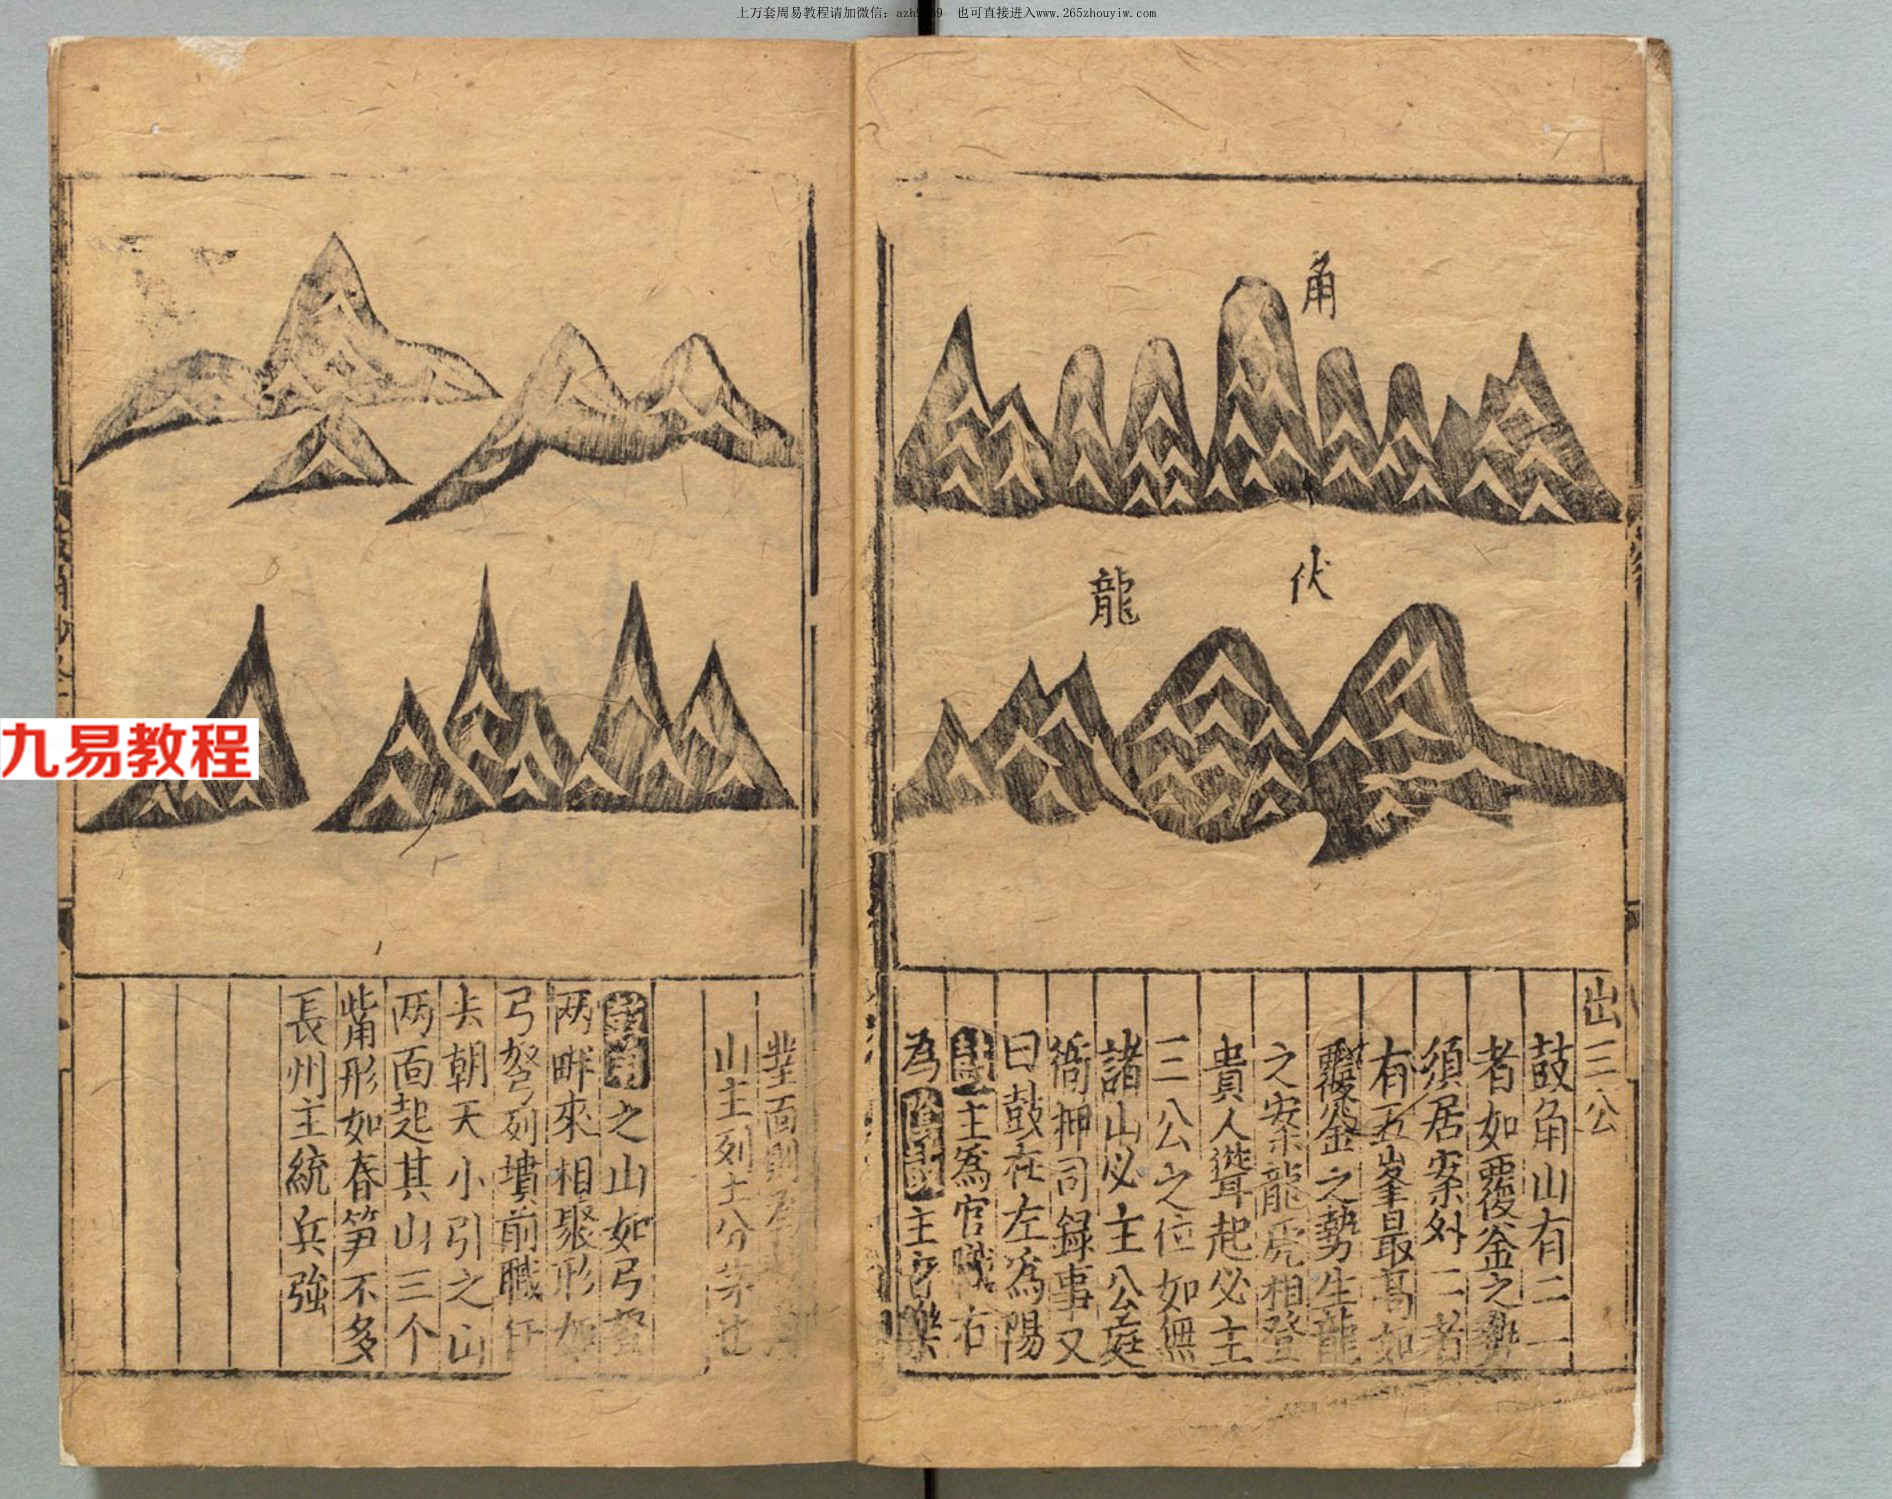 上万套周易教程请加微信：azh5669 也可直接进入www.265zhouyiw.com
角
伏
龍
出三公
鼓角山有二一
者如覆釜之勢
須居案外二者
有五峯最高如
覆釜之勢生龍
之案龍虎相登
貴人聳起必主
三公之位如無
諸山必主公庭
衙押司録事又
曰鼓在左為陽
主為官職右
為 主音樂
面則
山主列土分茅也
之山如弓弩
两畔來相聚形如
弓弩列墳前職任
去朝天小引之山
两面起其山三个
觜形如春笋不多
長州主統兵強
九易教程